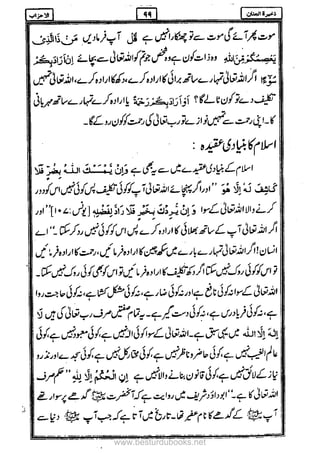 الاحزاب ۹۹ ذخیرۃ الجنان
موت پھر آئے گی موت سے تو چھٹکارا نہیں ہے قُلْ آپ فرما دیں مَنْ ذَا الَّذِیْ
یَعْصِمُكُمْ مِّنَ اللّٰهِ وہ ذات کون ہے وہ شخص جو تم کو اللہ تعالیٰ سے بچائے اِنْ اَرَادَ بِكُمْ
سُوْٓءًا اگر اللہ تعالیٰ تمہارے ساتھ برائی کا ارادہ کرے، دکھ کا ارادہ کرے، اللہ تعالیٰ تمہیں
تکلیف دے تو کون ٹالے گا؟ اَوْ اَرَادَ بِكُمْ رَحْمَةً یا ارادہ کرے تمہارے ساتھ مہربانی
کا۔ اپنی رحمت سے تمہیں نوازے تو رب تعالیٰ کی رحمت کو کون روکے گا۔
اسلام کا بنیادی عقیدہ :
اسلام کے بنیادی عقیدے میں سے یہ بھی ہے وَ اِنْ یَّمْسَسْكَ اللّٰهُ بِضُرٍّ فَلَا
كَاشِفَ لَهٗٓ اِلَّا هُوَ "اور اگر پہنچائے اللہ تعالیٰ آپ کو کوئی تکلیف پس کوئی نہیں اس کو دور
کرنے والا اللہ تعالیٰ کے سوا وَ اِنْ یُّرِدْكَ بِخَیْرٍ فَلَا رَآدَّ لِفَضْلِهٖ [یونس: ۱۰۷] "اور
اگر اللہ تعالیٰ آپ کے ساتھ بھلائی کا ارادہ کرے پس کوئی اس کو نہیں روک سکتا۔" اے
انسان! اگر اللہ تعالیٰ تمہارے بارے میں سکھ چین کا ارادہ فرمائیں، رحمت کا ارادہ فرمائیں
تو اس کو کوئی روک نہیں سکتا اگر دکھ تکلیف کا ارادہ فرمائیں تو اس کو بھی کوئی روک نہیں سکتا۔
اللہ تعالیٰ کے سوا نہ کوئی نافع ہے اور نہ کوئی ضار ہے، نہ کوئی مشکل کشا ہے، نہ کوئی حاجت روا
ہے، نہ کوئی فریاد رس ہے، نہ کوئی دست گیر ہے۔ یہ تمام صفتیں صرف رب تعالیٰ کی ہیں لَا
اِلٰهَ اِلَّا اللّٰهُ میں یہی سبق ہے۔ اللہ تعالیٰ کے سوا کوئی الٰہ نہیں ہے، کوئی معبود نہیں ہے، کوئی
عالم الغیب نہیں ہے، کوئی حاضر و ناظر نہیں ہے، کوئی مختار کل نہیں ہے، کوئی سجدے اور نذر و
نیاز کے لائق نہیں ہے، کوئی قانون بنانے والا نہیں ہے اِنِ الْحُكْمُ اِلَّا لِلّٰهِ "حکم صرف
اللہ تعالیٰ کا ہے۔" ابوداؤد شریف میں روایت ہے کہ آنحضرت ﷺ گدھے پر سوار تھے
آپ ﷺ کے گدھے کا نام عفیر تھا۔ تاریخ میں آتا ہے کہ جب آپ ﷺ دنیا سے
www.besturdubooks.net